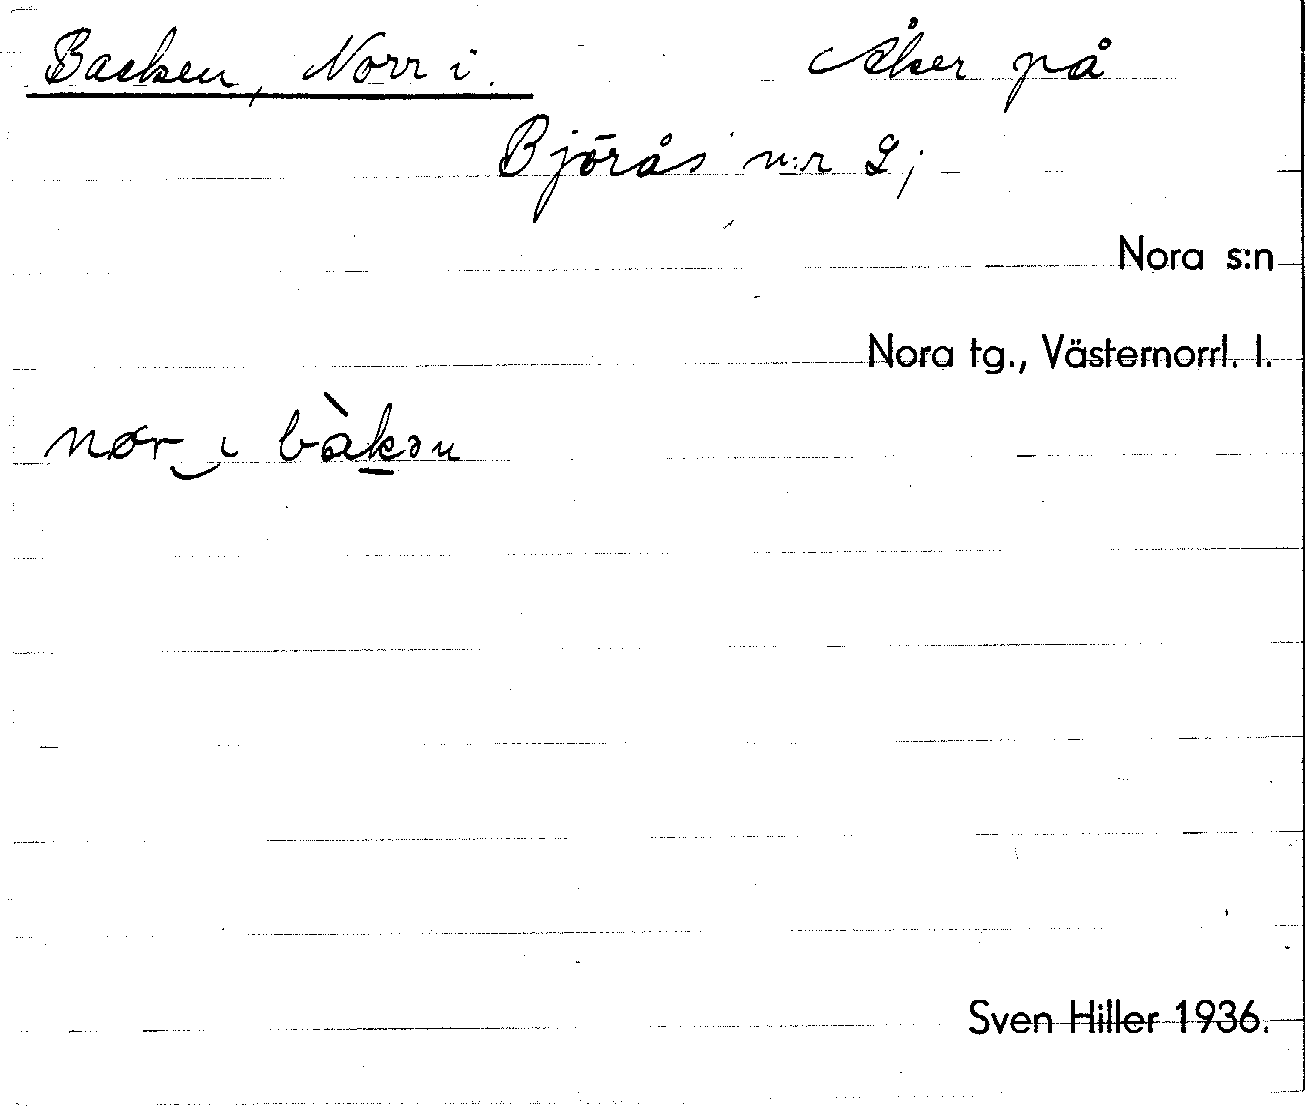 Backen, Norr i. Åker på
Björås n:r 2;
Nora s:n
Nora tg., Västernorrl. l.
nør‿ι bàkən
Sven Hiller 1936.